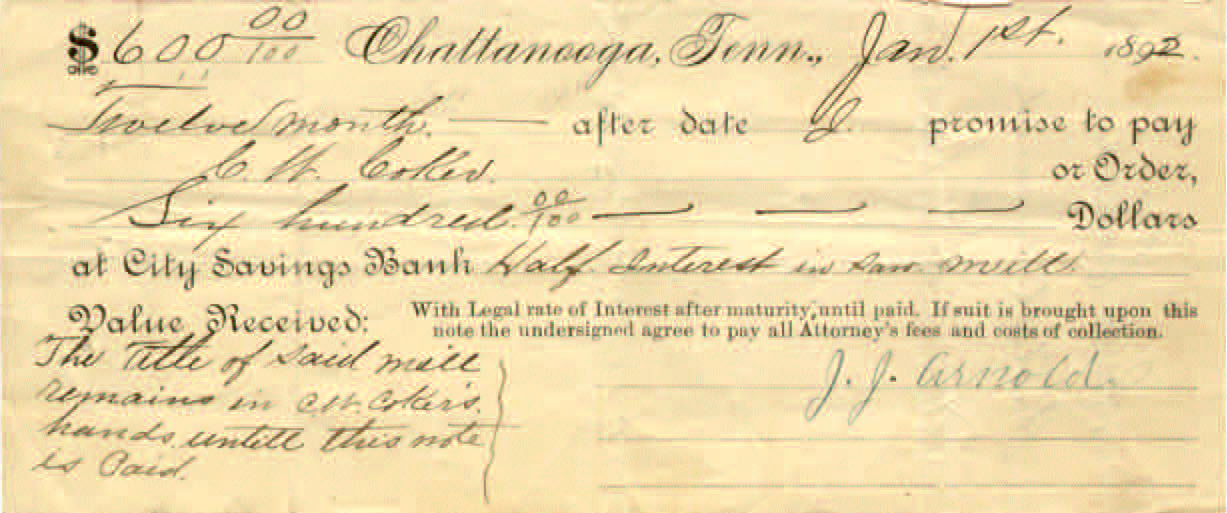 $600 00/100 Chattanooga, Tenn., Jan. 1st. 1892.
Twelve month. — after date I promise to pay
C. W. Coker. or Order,
Six hundred. 00/100 — — — Dollars
at City Savings Bank Half Interest in saw mill.
Value Received: With Legal rate of Interest after maturity, until paid. If suit is brought upon this
note the undersigned agree to pay all Attorney's fees and costs of collection.
The Title of said mill
remains in C.W. Coker's.
hands untill this note
is Paid.
J. J. Arnold.